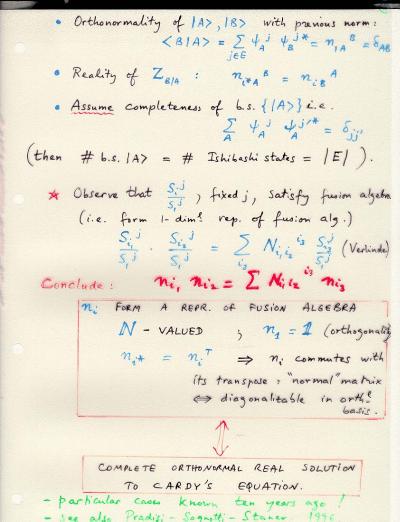 • Orthonormality of |A>, |B> with previous norm:
<B|A> = ∑_{j∈E} ψ_A^j ψ_B^{j*} = n_{1A}^B = δ_{AB}
• Reality of Z_{B|A} : n_{i*A}^B = n_{iB}^A
• Assume completeness of b.s. {|A>} i.e.
∑_A ψ_A^j ψ_A^{j'*} = δ_{jj'}
(then # b.s. |A> = # Ishibashi states = |E|).
* Observe that S_i^j/S_1^j, fixed j, satisfy fusion algebra
(i.e. form 1-dim^l rep. of fusion alg.)
S_{i_1}^j/S_1^j · S_{i_2}^j/S_1^j = ∑_{i_3} N_{i_1 i_2}^{i_3} S_{i_3}^j/S_1^j (Verlinde)
Conclude: n_{i_1} n_{i_2} = ∑ N_{i_1 i_2}^{i_3} n_{i_3}
n_i FORM A REPR. OF FUSION ALGEBRA
ℕ - VALUED ; n_1 = 1 (orthogonality
n_{i*} = n_i^T ⇒ n_i commutes with
its transpose: "normal" matrix
⇔ diagonalizable in orth^l
basis.
COMPLETE ORTHONORMAL REAL SOLUTION
TO CARDY'S EQUATION.
- particular cases known ten years ago!
- see also Pradisi - Sagnotti - Stanev 1996